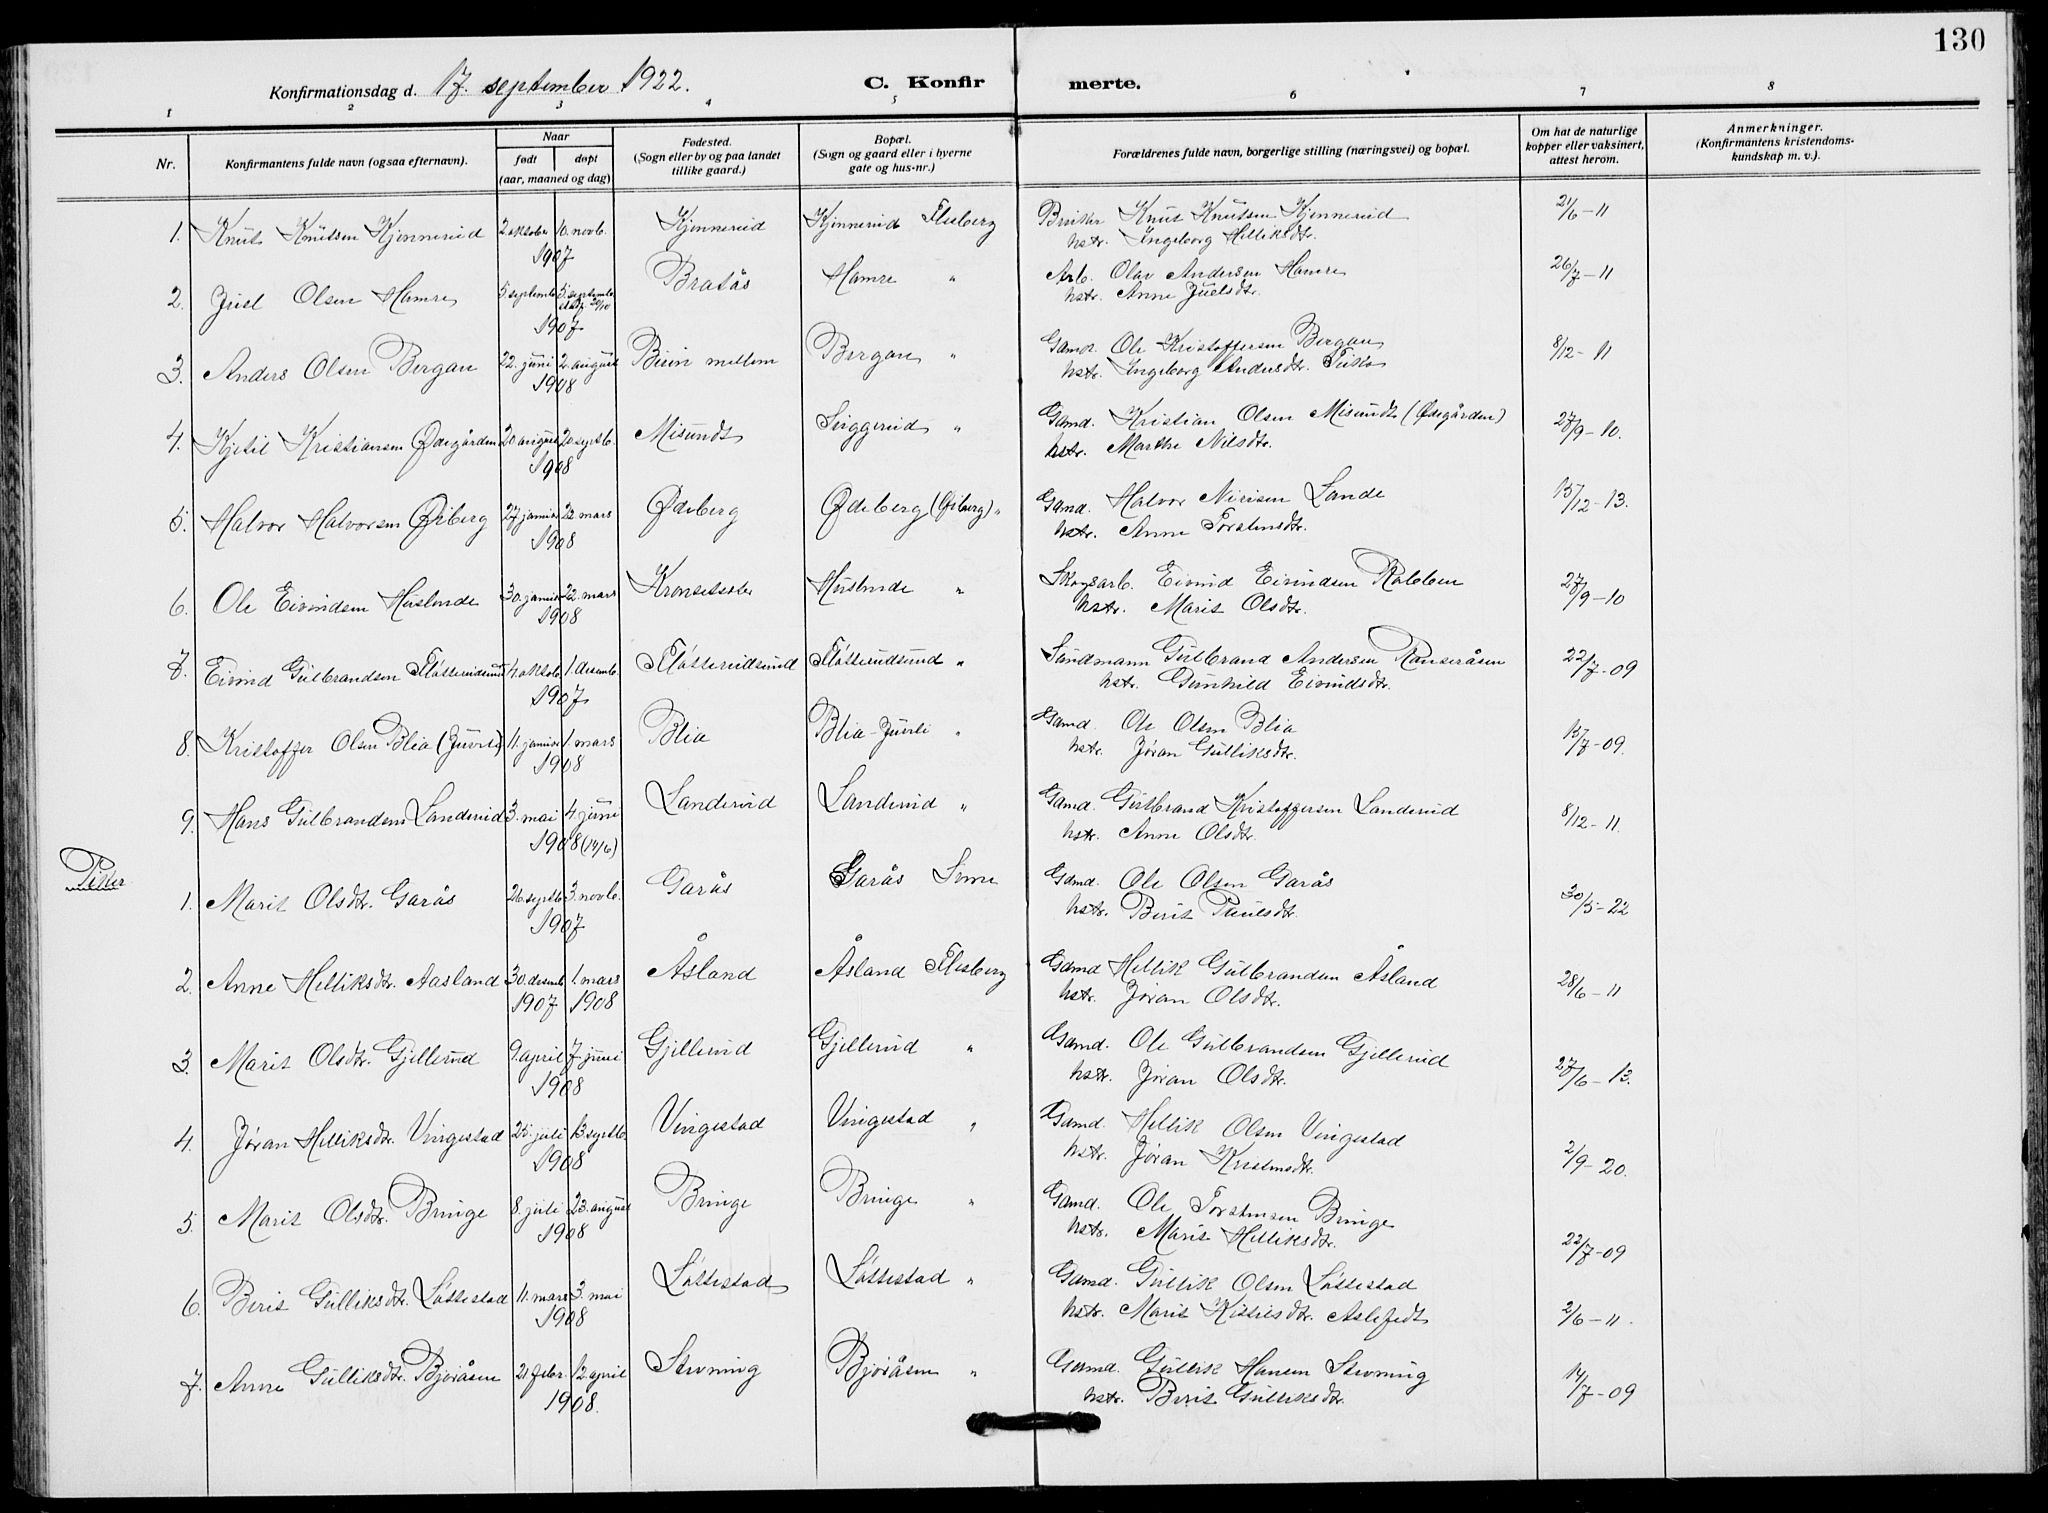 130
Konfirmationsdag d. 17. september 1922. C. Konfir merte.
1 2 3 4 5 6 7 8
Nr. Konfirmantens fulde navn (ogsaa efternavn). Naar født døpt (aar, maaned og dag) Fødested. (Sogn eller by og paa landet tillike gaard.) Bopæl. (Sogn og gaard eller i byerne gate og hus-nr.) Forældrenes fulde navn, borgerlige stilling (næringsvei) og bopæl. Om hat de naturlige kopper eller vaksinert, attest herom. Anmerkninger. (Konfirmantens kristendoms-kundskap m. v.).
1. Knut Knutsen Kjennerud 2. oktober 10. novb. Kjennerud Kjennerud Flesberg Bruker Knut Knutsen Kjennerud 21/6-11
1907 hstr. Ingeborg Helliksdtr.
2. Juel Olsen Hamre 5. septemb. 5. septemb. Bratås Hamre " Arb. Olav Andersen Hamre 26/7-11
1907 hstr. Anne Juelsdtr.
3. Anders Olsen Bergan 22. juni 2. august Bergan " Gamd. Ole Kristoffersen Bergan 8/12-11
1908 hstr. Ingeborg Andersdtr.
4. Kjetil Kristiansen Ødegården 20 august 20 septb. Misundt " Gamd. Kristian Olsen Misundt (Ødegården) 27/9-10.
1908 hstr. Marthe Nilsdtr.
5. Halvor Halvorsen Øiberg 27 januar 22 mars Ødeberg Ødeberg (Øiberg) " Gamd. Halvor Nirisen Lande 15/12-13.
1908 hstr. Anne Torstensdtr.
6. Ole Eivindsen Huslende 30. januar 22. mars Huslende " Skogsarb. Eivind Eivindsen Kolbben 27/9-10
1908 hstr. Marit Olsdtr.
7. Eivind Gulbrandsen Fløtterudsund 4. oktob. 1. desemb. Fløtterudsund Fløtterudsund " Sundmann Gulbrand Andersen Ranseråsen 22/7-09
1907 hstr. Gunhild Eivindsdtr.
8. Kristoffer Olsen Blia (Juvli) 11. januar 1. mars Blia Blia-Juvli " Gamd. Ole Olsen Blia 15/7-09.
1908 hstr. Jøran Gulliksdtr.
9. Hans Gulbrandsen Landerud 3. mai 4. juni Landerud Landerud " Gamd. Gulbrand Kristoffersen Landerud 8/12-11.
1908 (14/6) hstr. Anne Olsdtr.
Piker
1. Marit Olsdtr. Garås 26. septb. 3. novb. Garås Garås Svene Gamd. Ole Olsen Garås 30/5-22
1907 hstr. Berit Paulsdtr.
2. Anne Helliksdtr. Aasland 30. desemb. 1. mars Åsland Åsland Flesberg Gamd Hellik Gulbrandsen Åsland 28/6-11
1907 1908 hstr. Jøran Olsdtr.
3. Marit Olsdtr. Gjellerud 9. april 7. juni Gjellerud Gjellerud " Gamd. Ole Gulbrandsen Gjellerud 27/6-13.
1908 hstr. Jøran Olsdtr.
4. Jøran Helliksdtr. Vingestad 25. juli 13. septb. Vingestad Vingestad " Gamd. Hellik Olsen Vingestad 2/9-20.
1908 hstr. Jøran Kristensdtr.
5. Marit Olsdtr. Bringe 8. juli 23. august Bringe Bringe " Gamd. Ole Torstensen Bringe 22/7-09
1908 hstr. Marit Helliksdtr.
6. Berit Gulliksdtr. Løttestad 11. mars 3. mai Løttestad Løttestad " Gamd. Gullik Olsen Løttestad 2/6-11.
1908 hstr. Marit Kittilsdtr. Aslefedt
7. Anne Gulliksdtr. Bjøråsen 21. febr. 12. april Stevning Bjøråsen " Gamd. Gullik Hansen Stevning 14/7-09
1908. hstr. Berit Gulliksdtr.